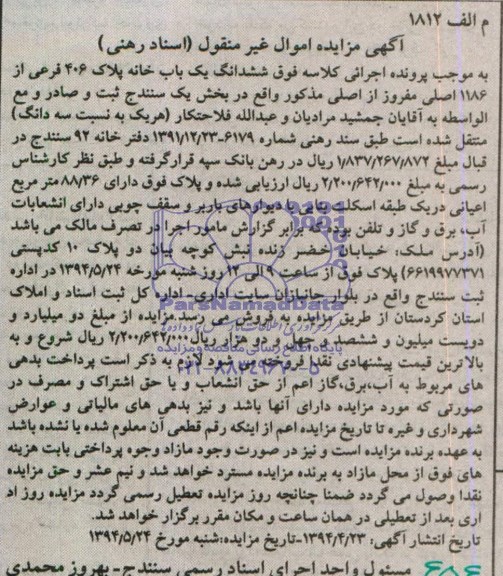 م الف ۱۸۱۲
آگهی مزایده اموال غیر منقول (اسناد رهنی)
به موجب پرونده اجرائی کلاسه فوق ششدانگ یک باب خانه پلاک ۴۰۶ فرعی از
۱۱۸۶ اصلی مفروز از اصلی مذکور واقع در بخش یک سنندج ثبت و صادر و مع
الواسطه به آقایان جمشید مرادیان و عبدالله فلاحتکار (هریک به نسبت سه دانگ)
منتقل شده است طبق سند رهنی شماره ۶۱۷۹-۱۳۹۱/۱۲/۲۳ دفتر خانه ۹۲ سنندج در
قبال مبلغ ۱/۸۳۷/۲۶۷/۸۷۲ ریال در رهن بانک سپه قرارگرفته و طبق نظر کارشناس
رسمی به مبلغ ۲/۲۰۰/۶۴۲/۰۰۰ ریال ارزیابی شده و پلاک فوق دارای ۸۸/۳۶ متر مربع
اعیانی دریک طبقه اسکلت بنایی با دیوارهای باربر و سقف چوبی دارای انشعابات
آب، برق و گاز و تلفن بوده که برابر گزارش مامور اجرا در تصرف مالک می باشد
(آدرس ملک: خیابان خضر زنده نبش کوچه میان دو پلاک ۱۰ کدپستی
۶۶۱۹۹۷۷۳۷۱) پلاک فوق از ساعت ۹ الی ۱۲ روز شنبه مورخه ۱۳۹۴/۵/۲۴ در اداره
ثبت سنندج واقع در بلوار جانبازان سایت اداری اداره کل ثبت اسناد و املاک
استان کردستان از طریق مزایده به فروش می رسد.مزایده از مبلغ دو میلیارد و
دویست میلیون و ششصد و چهل و دو هزار ریال ۲/۲۰۰/۶۴۲/۰۰۰ ریال شروع و به
بالاترین قیمت پیشنهادی نقدا فروخته می شود لازم به ذکر است پرداخت بدهی
های مربوط به آب،برق،گاز اعم از حق انشعاب و یا حق اشتراک و مصرف در
صورتی که مورد مزایده دارای آنها باشد و نیز بدهی های مالیاتی و عوارض
شهرداری و غیره تا تاریخ مزایده اعم از اینکه رقم قطعی آن معلوم شده یا نشده باشد
به عهده برنده مزایده است و نیز در صورت وجود مازاد وجوه پرداختی بابت هزینه
های فوق از محل مازاد به برنده مزایده مسترد خواهد شد و نیم عشر و حق مزایده
نقدا وصول می گردد ضمنا چنانچه روز مزایده تعطیل رسمی گردد مزایده روز اد
اری بعد از تعطیلی در همان ساعت و مکان مقرر برگزار خواهد شد.
تاریخ انتشار آگهی: ۱۳۹۴/۴/۲۳-تاریخ مزایده:شنبه مورخ ۱۳۹۴/۵/۲۴
۶۸۶ مسئول واحد اجرای اسناد رسمی سنندج- بهروز محمدی
ParsNamadData
پایگاه اطلاع رسانی مناقصه و مزایده
۰۲۱-۸۸۳۴۹۶۷۰-۵